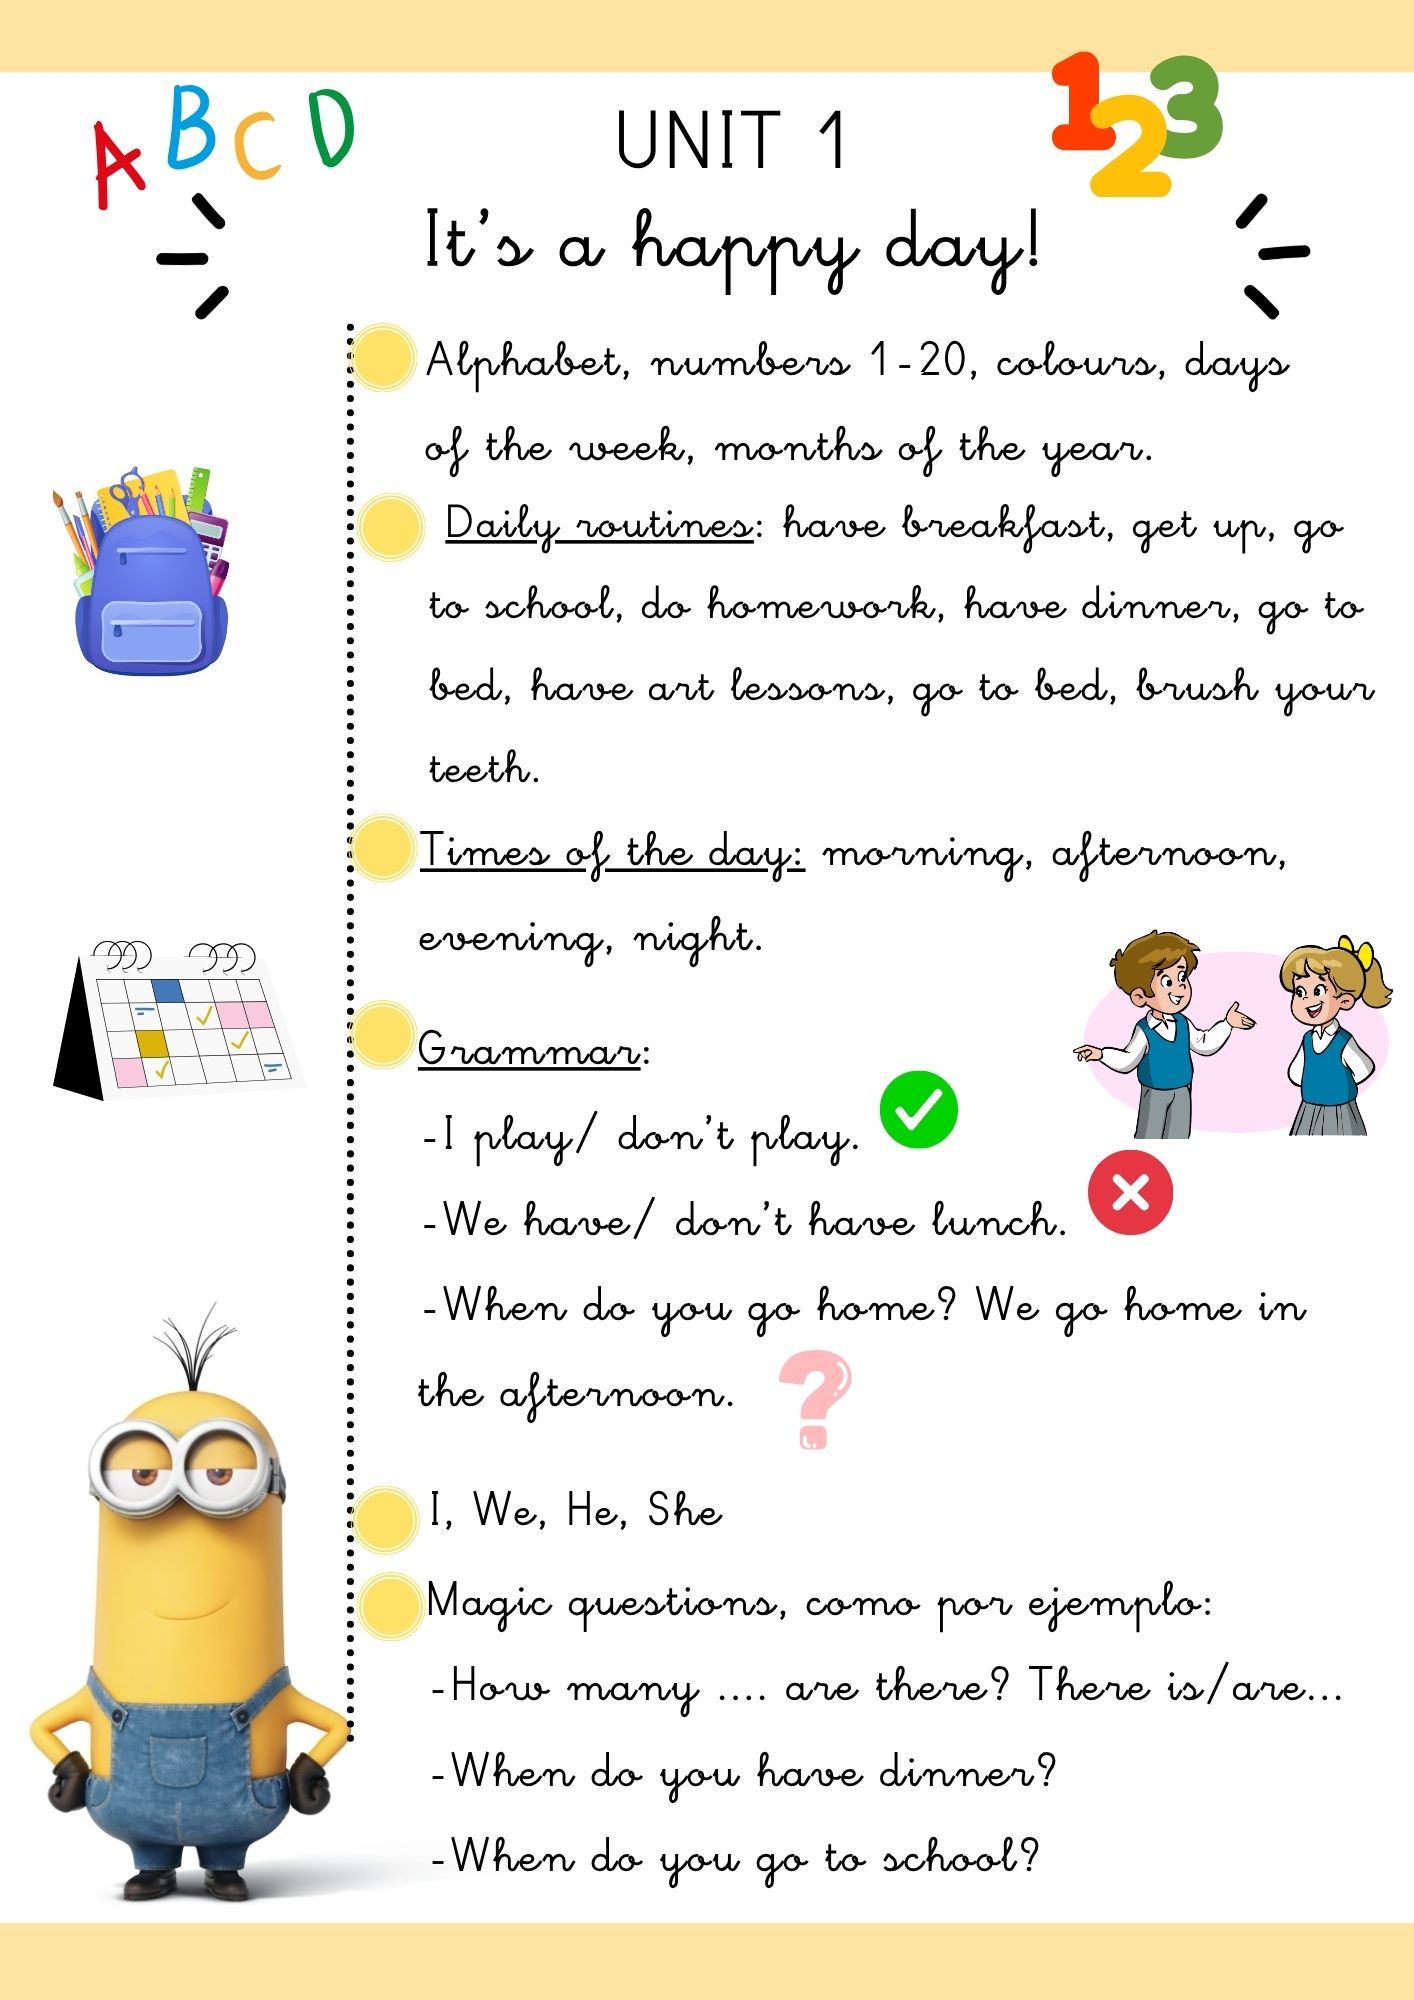 A B C D
1 2 3
UNIT 1
It's a happy day!
Alphabet, numbers 1-20, colours, days
of the week, months of the year.
Daily routines: have breakfast, get up, go
to school, do homework, have dinner, go to
bed, have art lessons, go to bed, brush your
teeth.
Times of the day: morning, afternoon,
evening, night.
Grammar:
-I play/ don't play.
-We have/ don't have lunch.
-When do you go home? We go home in
the afternoon.
?
I, We, He, She
Magic questions, como por ejemplo:
-How many .... are there? There is/are...
-When do you have dinner?
-When do you go to school?